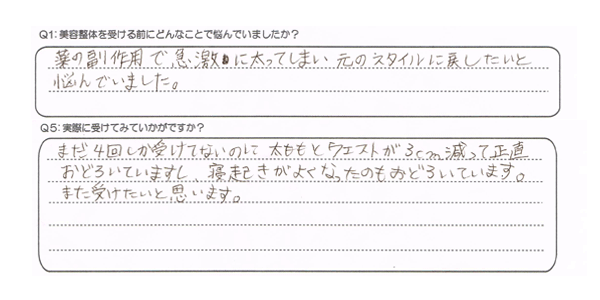 Q1：美容整体を受ける前にどんなことで悩んでいましたか？
薬の副作用で急激に太ってしまい 元のスタイルに戻したいと
悩んでいました。
Q5：実際に受けてみていかがですか？
まだ4回しか受けてないのに 太ももとウエストが3cm減って正直
おどろいていますし、寝起きがよくなったのもおどろいています。
また受けたいと思います。